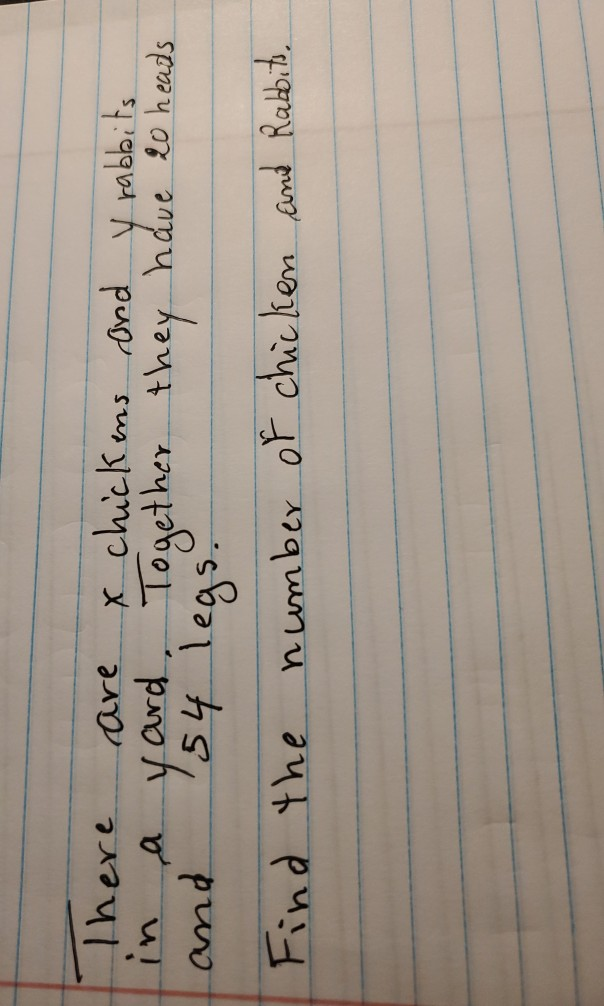 There are x chickens and y rabbits
in a yard. Together they have 20 heads
and 54 legs.
Find the number of chicken and Rabbits.